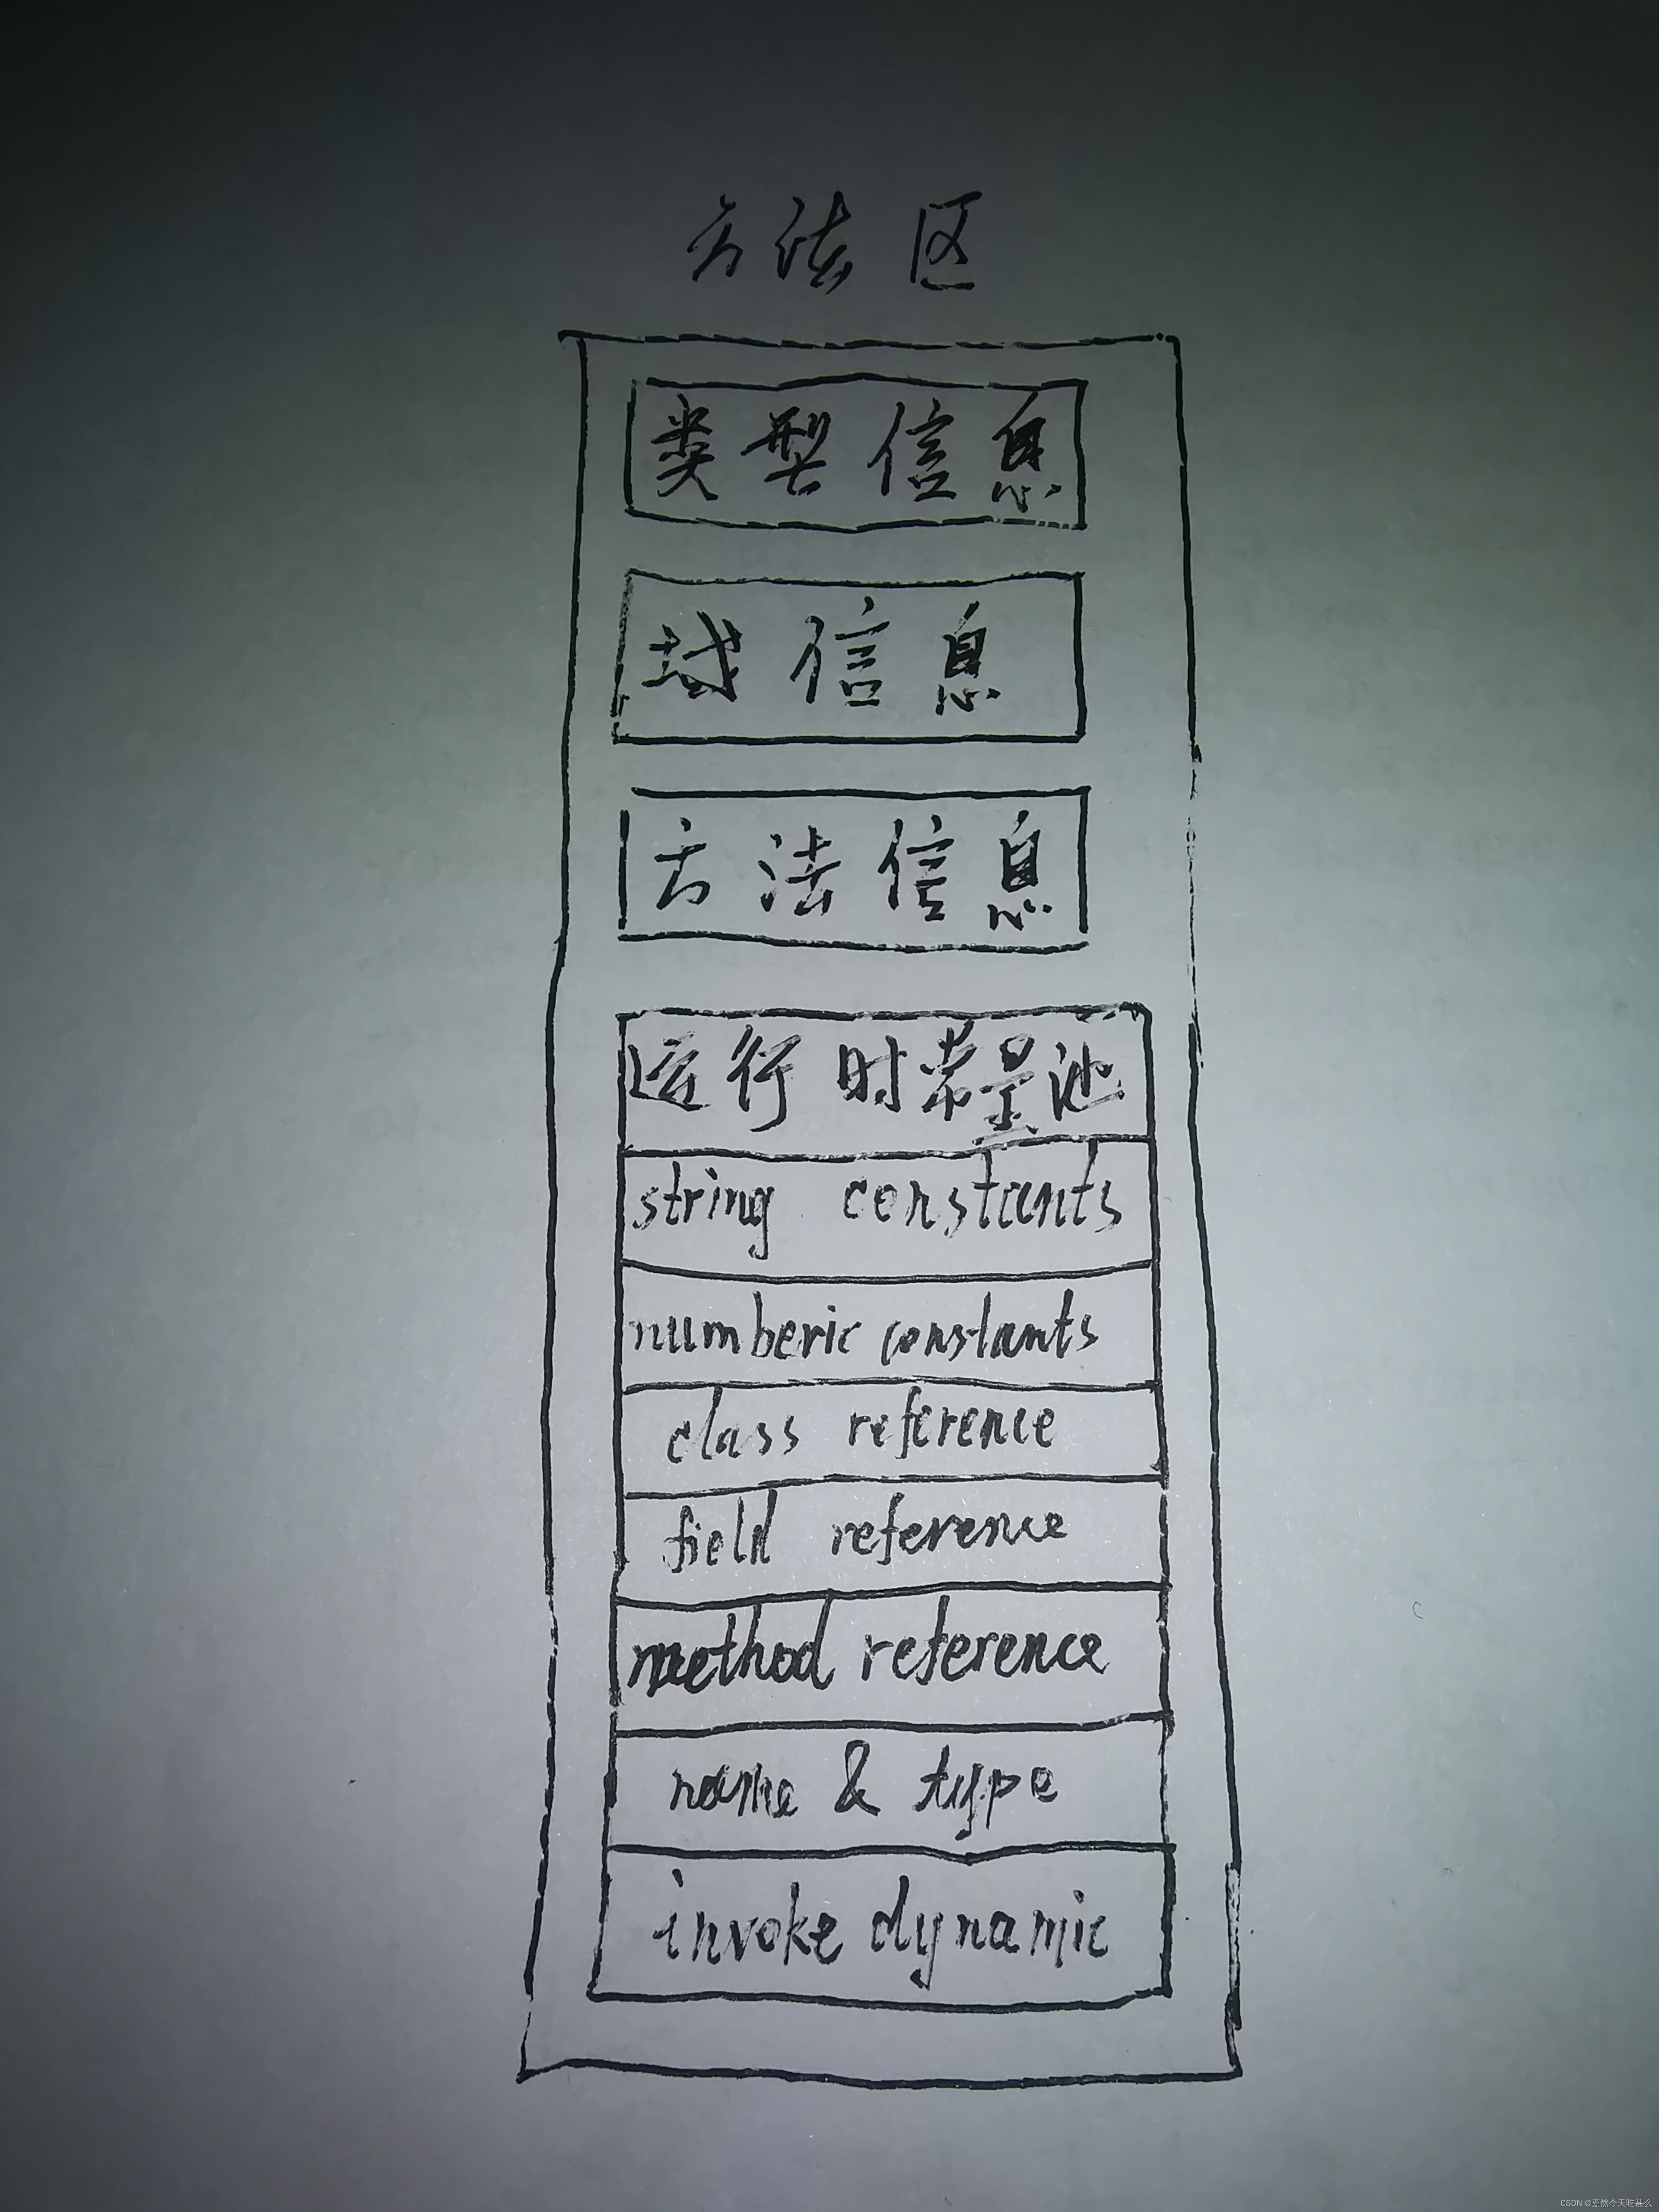 方法区
类型信息
域信息
方法信息
运行时常量池
string constants
numberic constants
class reference
field reference
method reference
name & type
invoke dynamic
CSDN @嘉然今天吃甚么